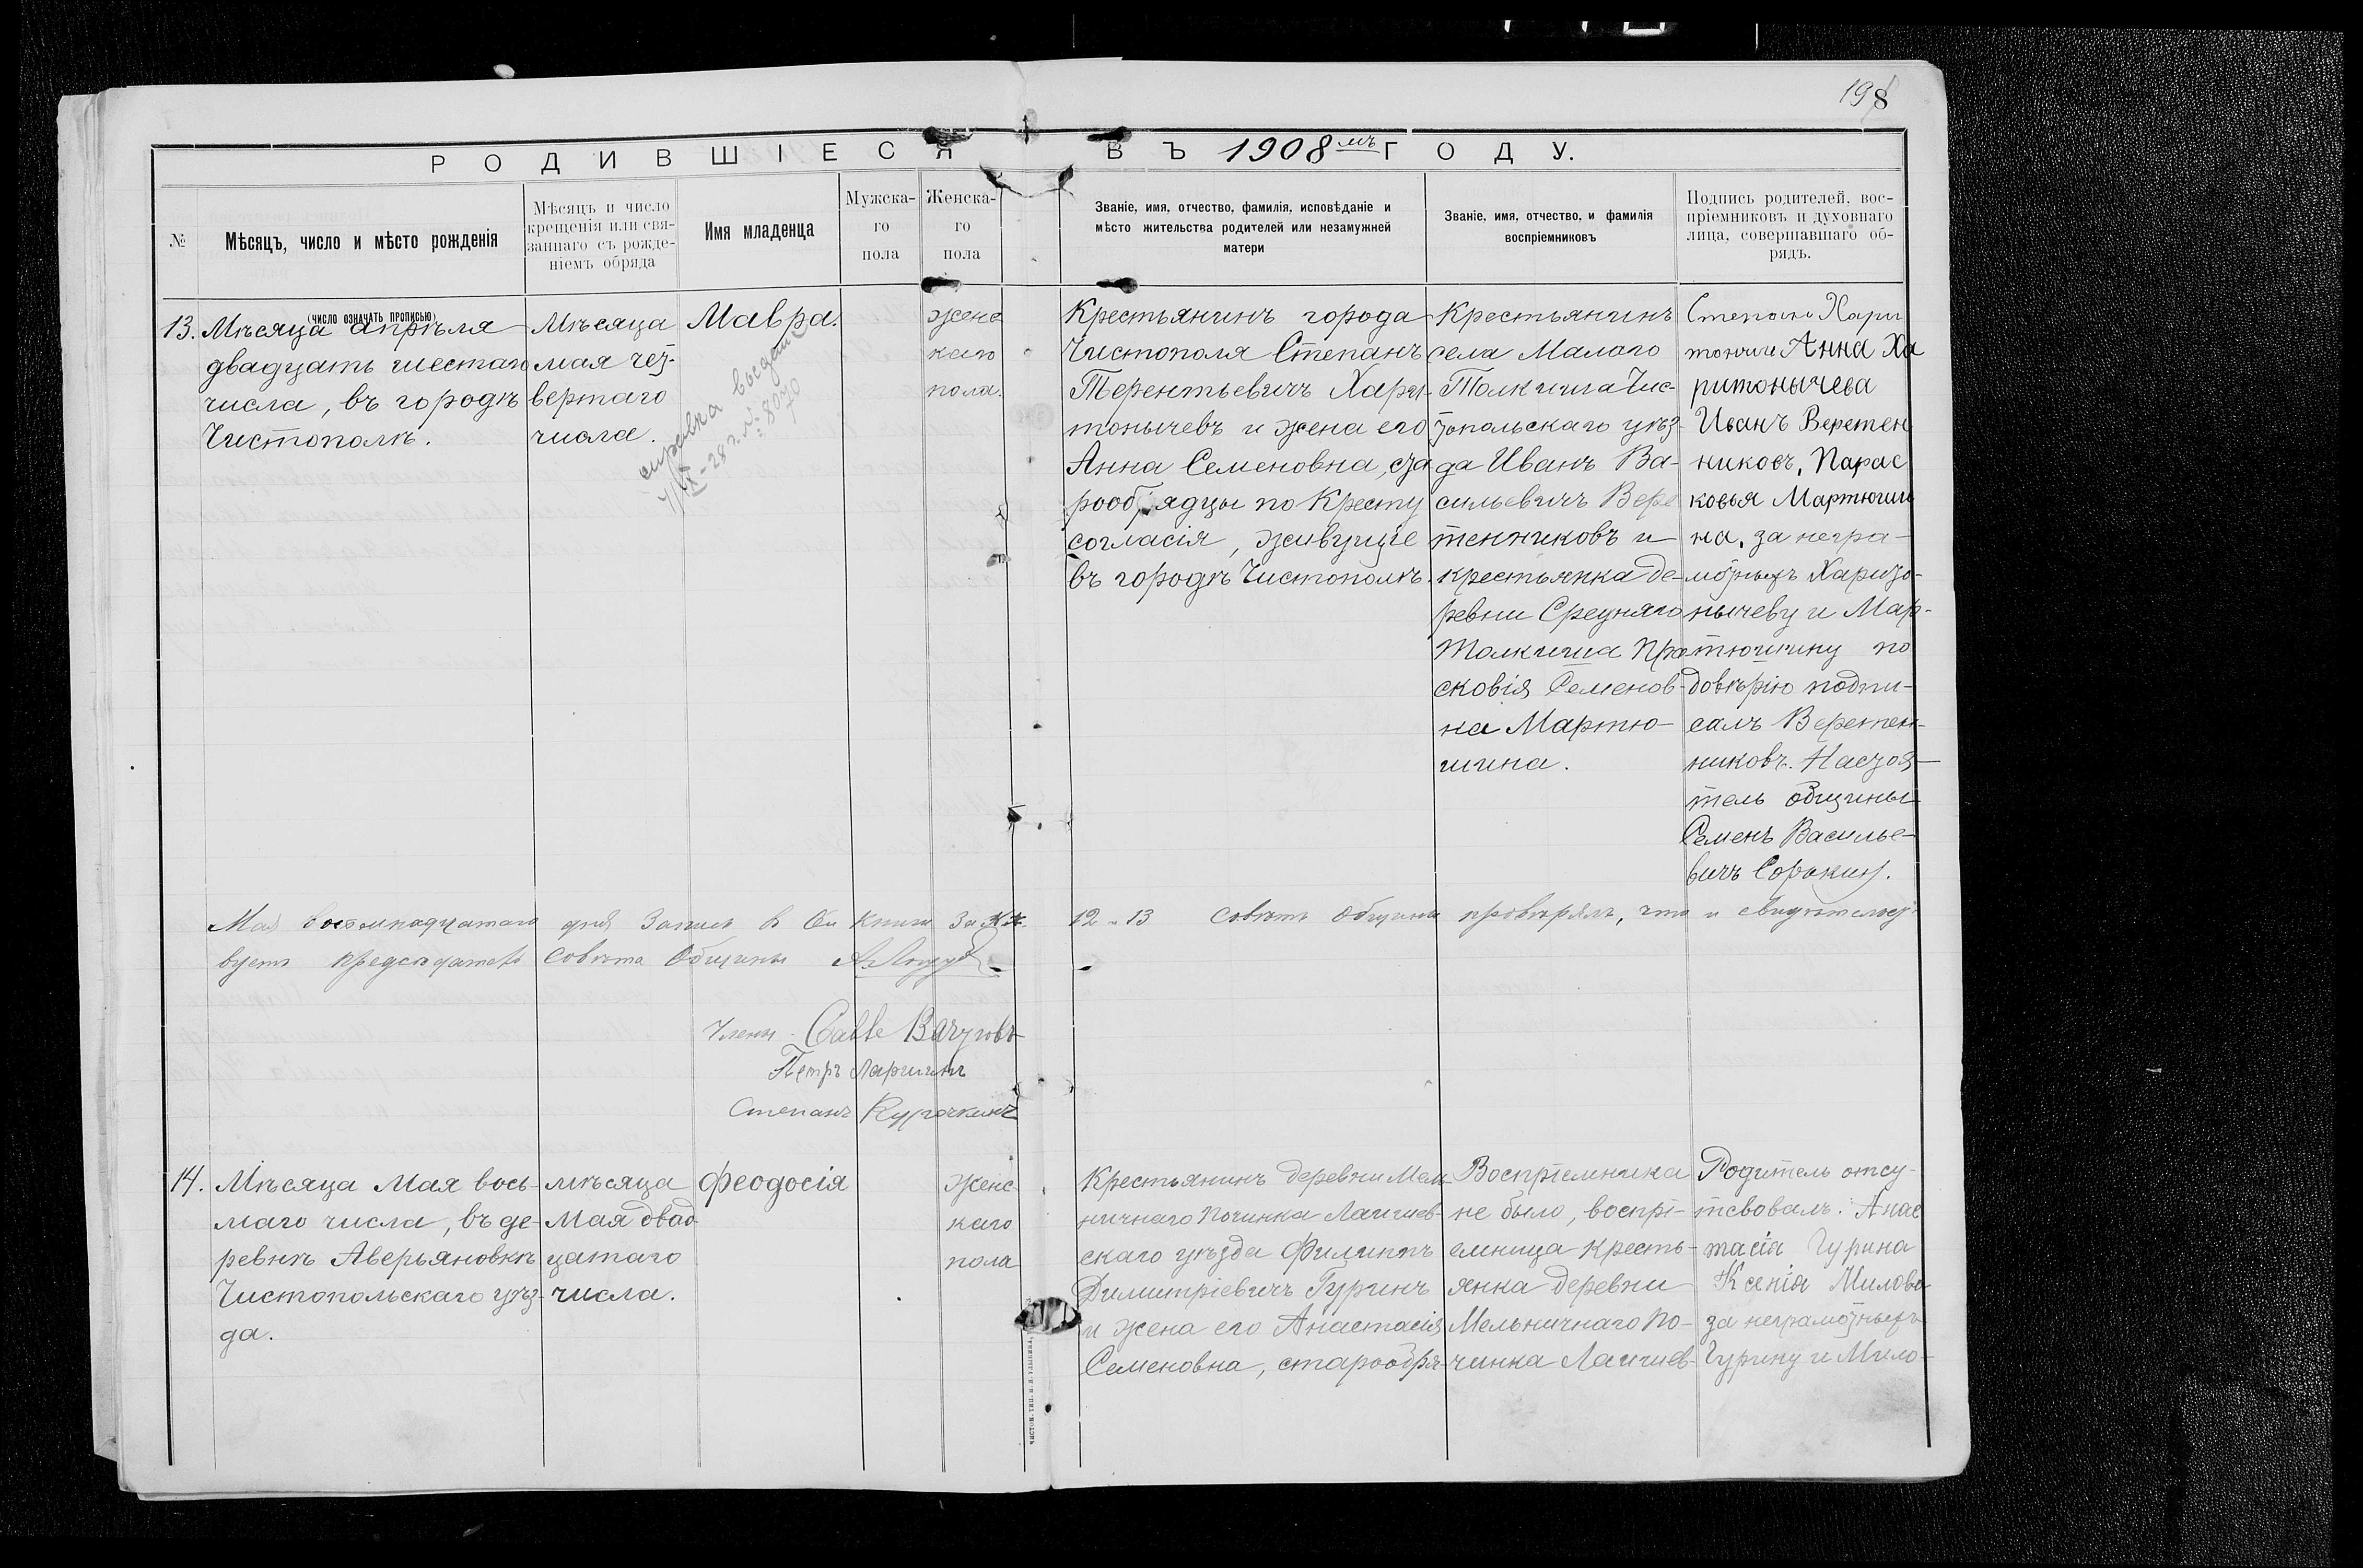 198
РОДИВШІЕСЯ ВЪ 1908мъ ГОДУ.
№
Мѣсяцъ, число и мѣсто рожденія
(ЧИСЛО ОЗНАЧАТЬ ПРОПИСЬЮ)
Мѣсяцъ и число
крещенія или свя-
заннаго съ рожде-
ніемъ обряда
Имя младенца
Мужска-
го
пола
Женска-
го
пола
Званіе, имя, отчество, фамилія, исповѣданіе и
мѣсто жительства родителей или незамужней
матери
Званіе, имя, отчество, и фамилія
воспріемниковъ
Подпись родителей, вос-
пріемниковъ и духовнаго
лица, совершавшаго об-
рядъ.
13.
Мѣсяца апрѣля
двадцать шестаго
числа, въ городѣ
Чистополѣ.
Мѣсяца
мая чет-
вертаго
числа.
Мавра.
справка выдана
женс
каго
пола.
Крестьянинъ города
Чистополя Степанъ
Терентьевичъ Хари-
тонычевъ и жена его
Анна Семеновна, ста
рообрядцы по Кресту
согласія, живущіе
въ городѣ Чистополѣ.
Крестьянинъ
села Малого
Толкиша Чис-
топольскаго уѣз-
да Иванъ Ва-
сильевичъ Вере
тенниковъ и
крестьянка де-
ревни Средняго
Толкиша Пра
сковія Семенов-
на Мартю-
шина.
Степанъ Хари
Анна Ха
ритонычева
Иванъ Веретен
никовъ, Парас
ковья Мартюши
на. за негра-
мотныхъ Харито-
нычеву и Мар-
тюшину по
довѣрію подпи-
салъ Веретен-
никовъ. Настоя-
тель общины
Семенъ Василье-
вичъ Сорокинъ.
Мая восемнадцатаго дня Запись въ книги За №№. 12 и 13 Совѣтъ Общины провѣрялъ, что и свидѣтельст
вуетъ Предсѣдатель Совѣта Общины
Члены
Петръ Ларишинъ
Степанъ Курочкинъ
14.
Мѣсяца Мая вось-
маго числа, въ де-
ревнѣ Аверьяновкѣ
Чистопольскаго уѣз-
да.
мѣсяца
Мая двад
цатаго
числа.
Феодосія
Женс
каго
пола
Крестьянинъ деревни Мель
ничнаго Починка Лаишев-
скаго уѣзда Филиппъ
Димитріевичъ Гуринъ
и жена его Анастасія
Семеновна, старообря-
Воспріемника
не было, воспрі-
емница кресть-
янка деревни
Мельничнаго По-
чинка Лаишев-
Родитель отсу-
тсвовалъ. Анас
тасія Гурина
Ксенія Милова
за неграмотныхъ
Гурину и Мило-